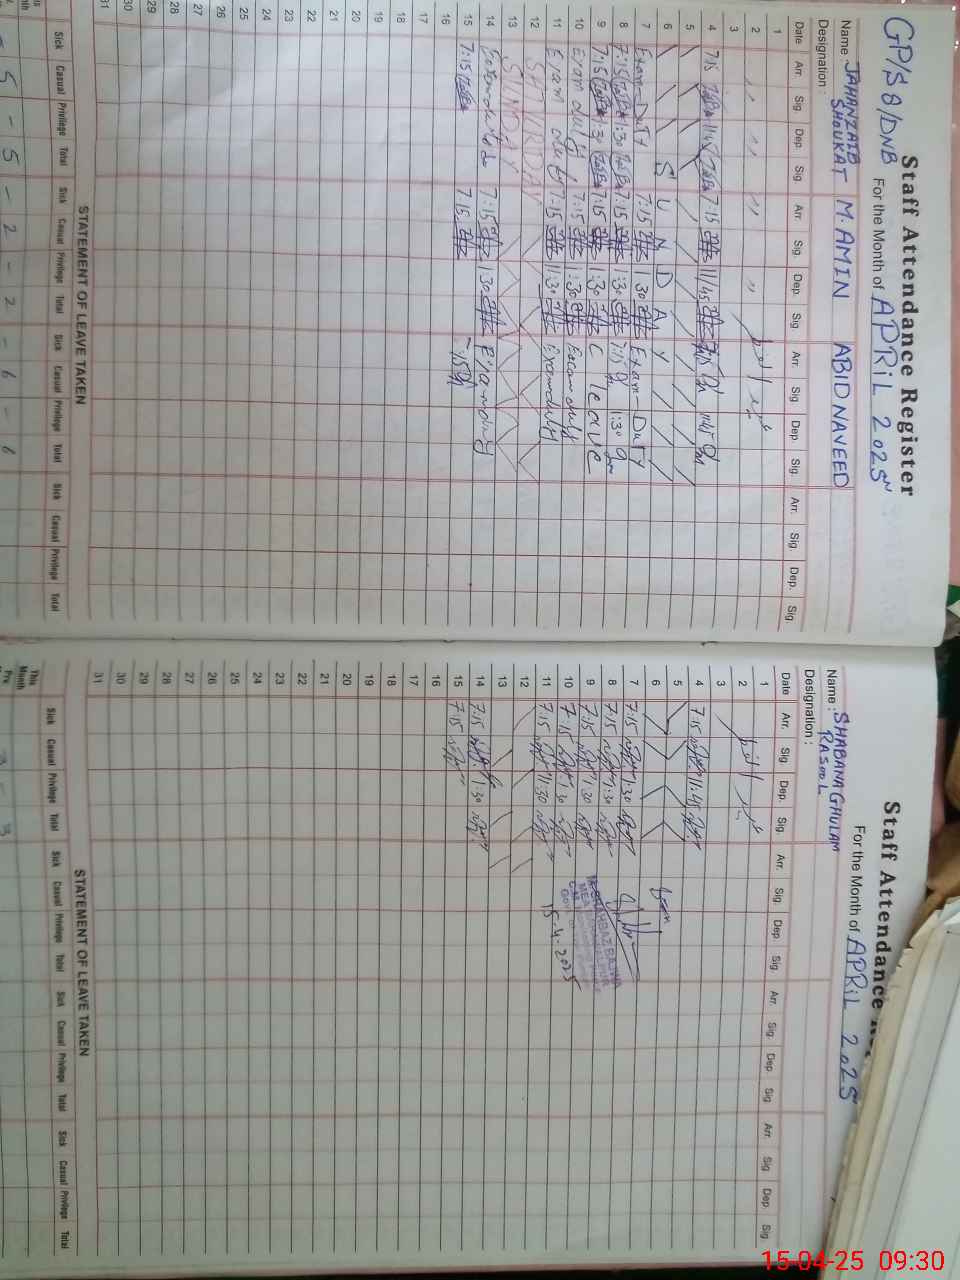 Staff Attendance Register
GP/S 8/DNB For the Month of APRIL 2025
Name JAHANZAIB SHOUKAT M. AMIN ABID NAVEED
Designation :
Date Arr. Sig. Dep. Sig. Arr. Sig. Dep. Sig. Arr. Sig. Dep. Sig. Arr. Sig. Dep. Sig.
1
2 " " " "
3
4 7:15 11:45 7:15 11:45 7:15 11:45
5
6 S U N D A Y
7 Exam Duty 7:15 1:30 Exam Duty
8 7:15 1:30 7:15 1:30 7:15 1:30
9 7:15 1:30 7:15 1:30 C leave
10 Exam duty 7:15 1:30 Exam duty
11 Exam duty 7:15 11:30 Exam duty
12 SATURDAY
13 SUNDAY
14 7:15 1:30
15 7:15 7:15 7:15
16
17
18
19
20
21
22
23
24
25
26
27
28
29
30
31
STATEMENT OF LEAVE TAKEN
Sick Casual Privilege Total Sick Casual Privilege Total Sick Casual Privilege Total Sick Casual Privilege Total
5 - 5 - 2 - 2 - 6 - 6
Staff Attendance
For the Month of APRIL 2025
Name : SHABANA GHULAM RASOOL
Designation :
Date Arr. Sig. Dep. Sig. Arr. Sig. Dep. Sig. Arr. Sig. Dep. Sig. Arr. Sig. Dep. Sig.
1
2
3
4 7:15 11:45
5
6
7 7:15 1:30
8 7:15 1:30
9 7:15 1:30
10 7:15 1:30
11 7:15 11:30
12
13
14 7:15 1:30
15 7:15
16
17
18
19
20
21
22
23
24
25
26
27
28
29
30
31
15-4-2025
STATEMENT OF LEAVE TAKEN
Sick Casual Privilege Total Sick Casual Privilege Total Sick Casual Privilege Total Sick Casual Privilege Total
This Month
15-04-25 09:30